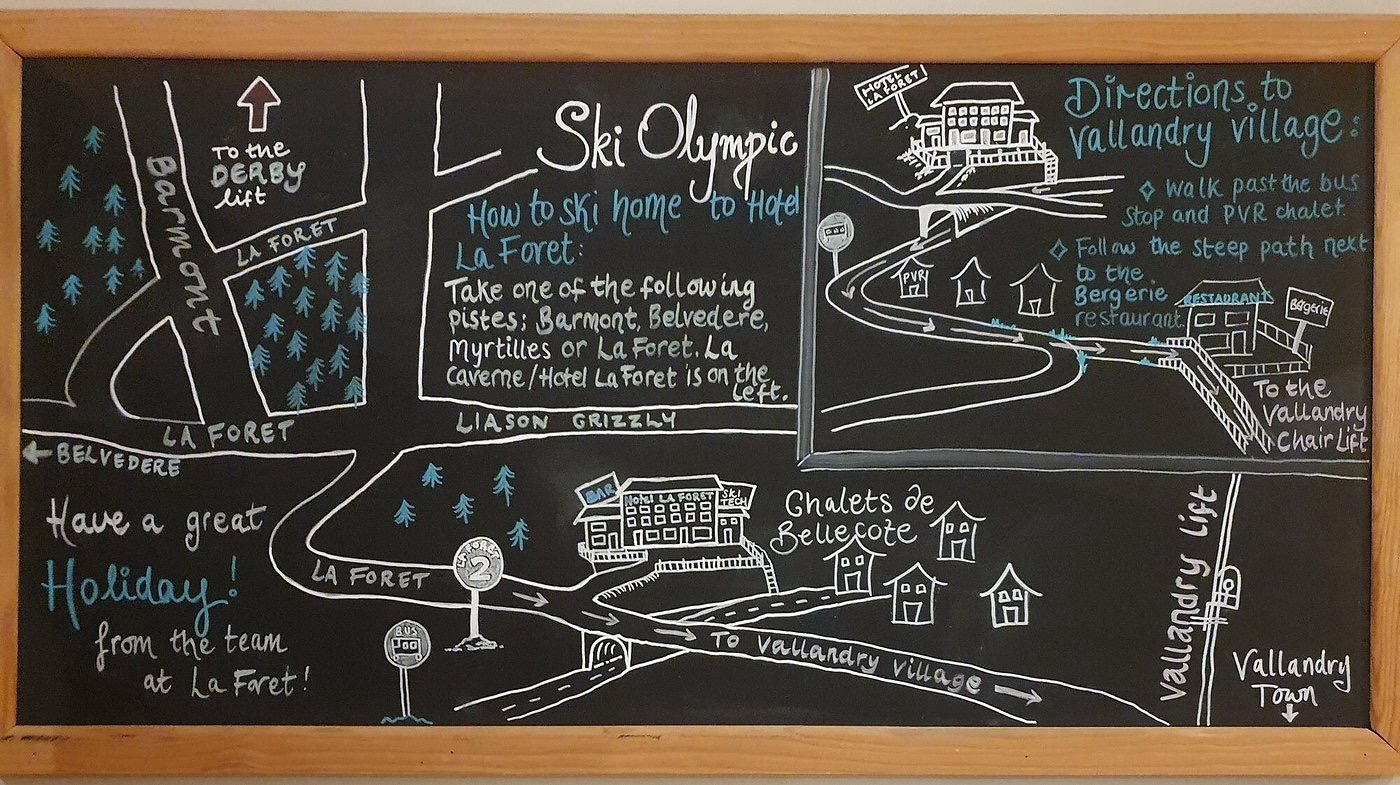 Barmont
To the
DERBY
lift
LA FORET
LA FORET
BELVEDERE
Ski Olympic
How to ski home to Hotel
La Foret:
Take one of the following
pistes: Barmont, Belvedere,
Myrtilles or La Foret. La
Caverne/Hotel La Foret is on the
left.
LIASON GRIZZLY
HOTEL
LA FORET
Directions to
Vallandry village:
Walk past the bus
stop and PVR chalet.
Follow the steep path next
to the
Bergerie
restaurant.
PVR
RESTAURANT
Bergerie
To the
Vallandry
Chair Lift
Have a great
Holiday!
from the team
at La Foret!
LA FORET
LA FORET
2
BUS
BAR
HOTEL LA FORET
SKI
TECH
Chalets de
Bellecote
To Vallandry village
Vallandry lift
Vallandry
Town